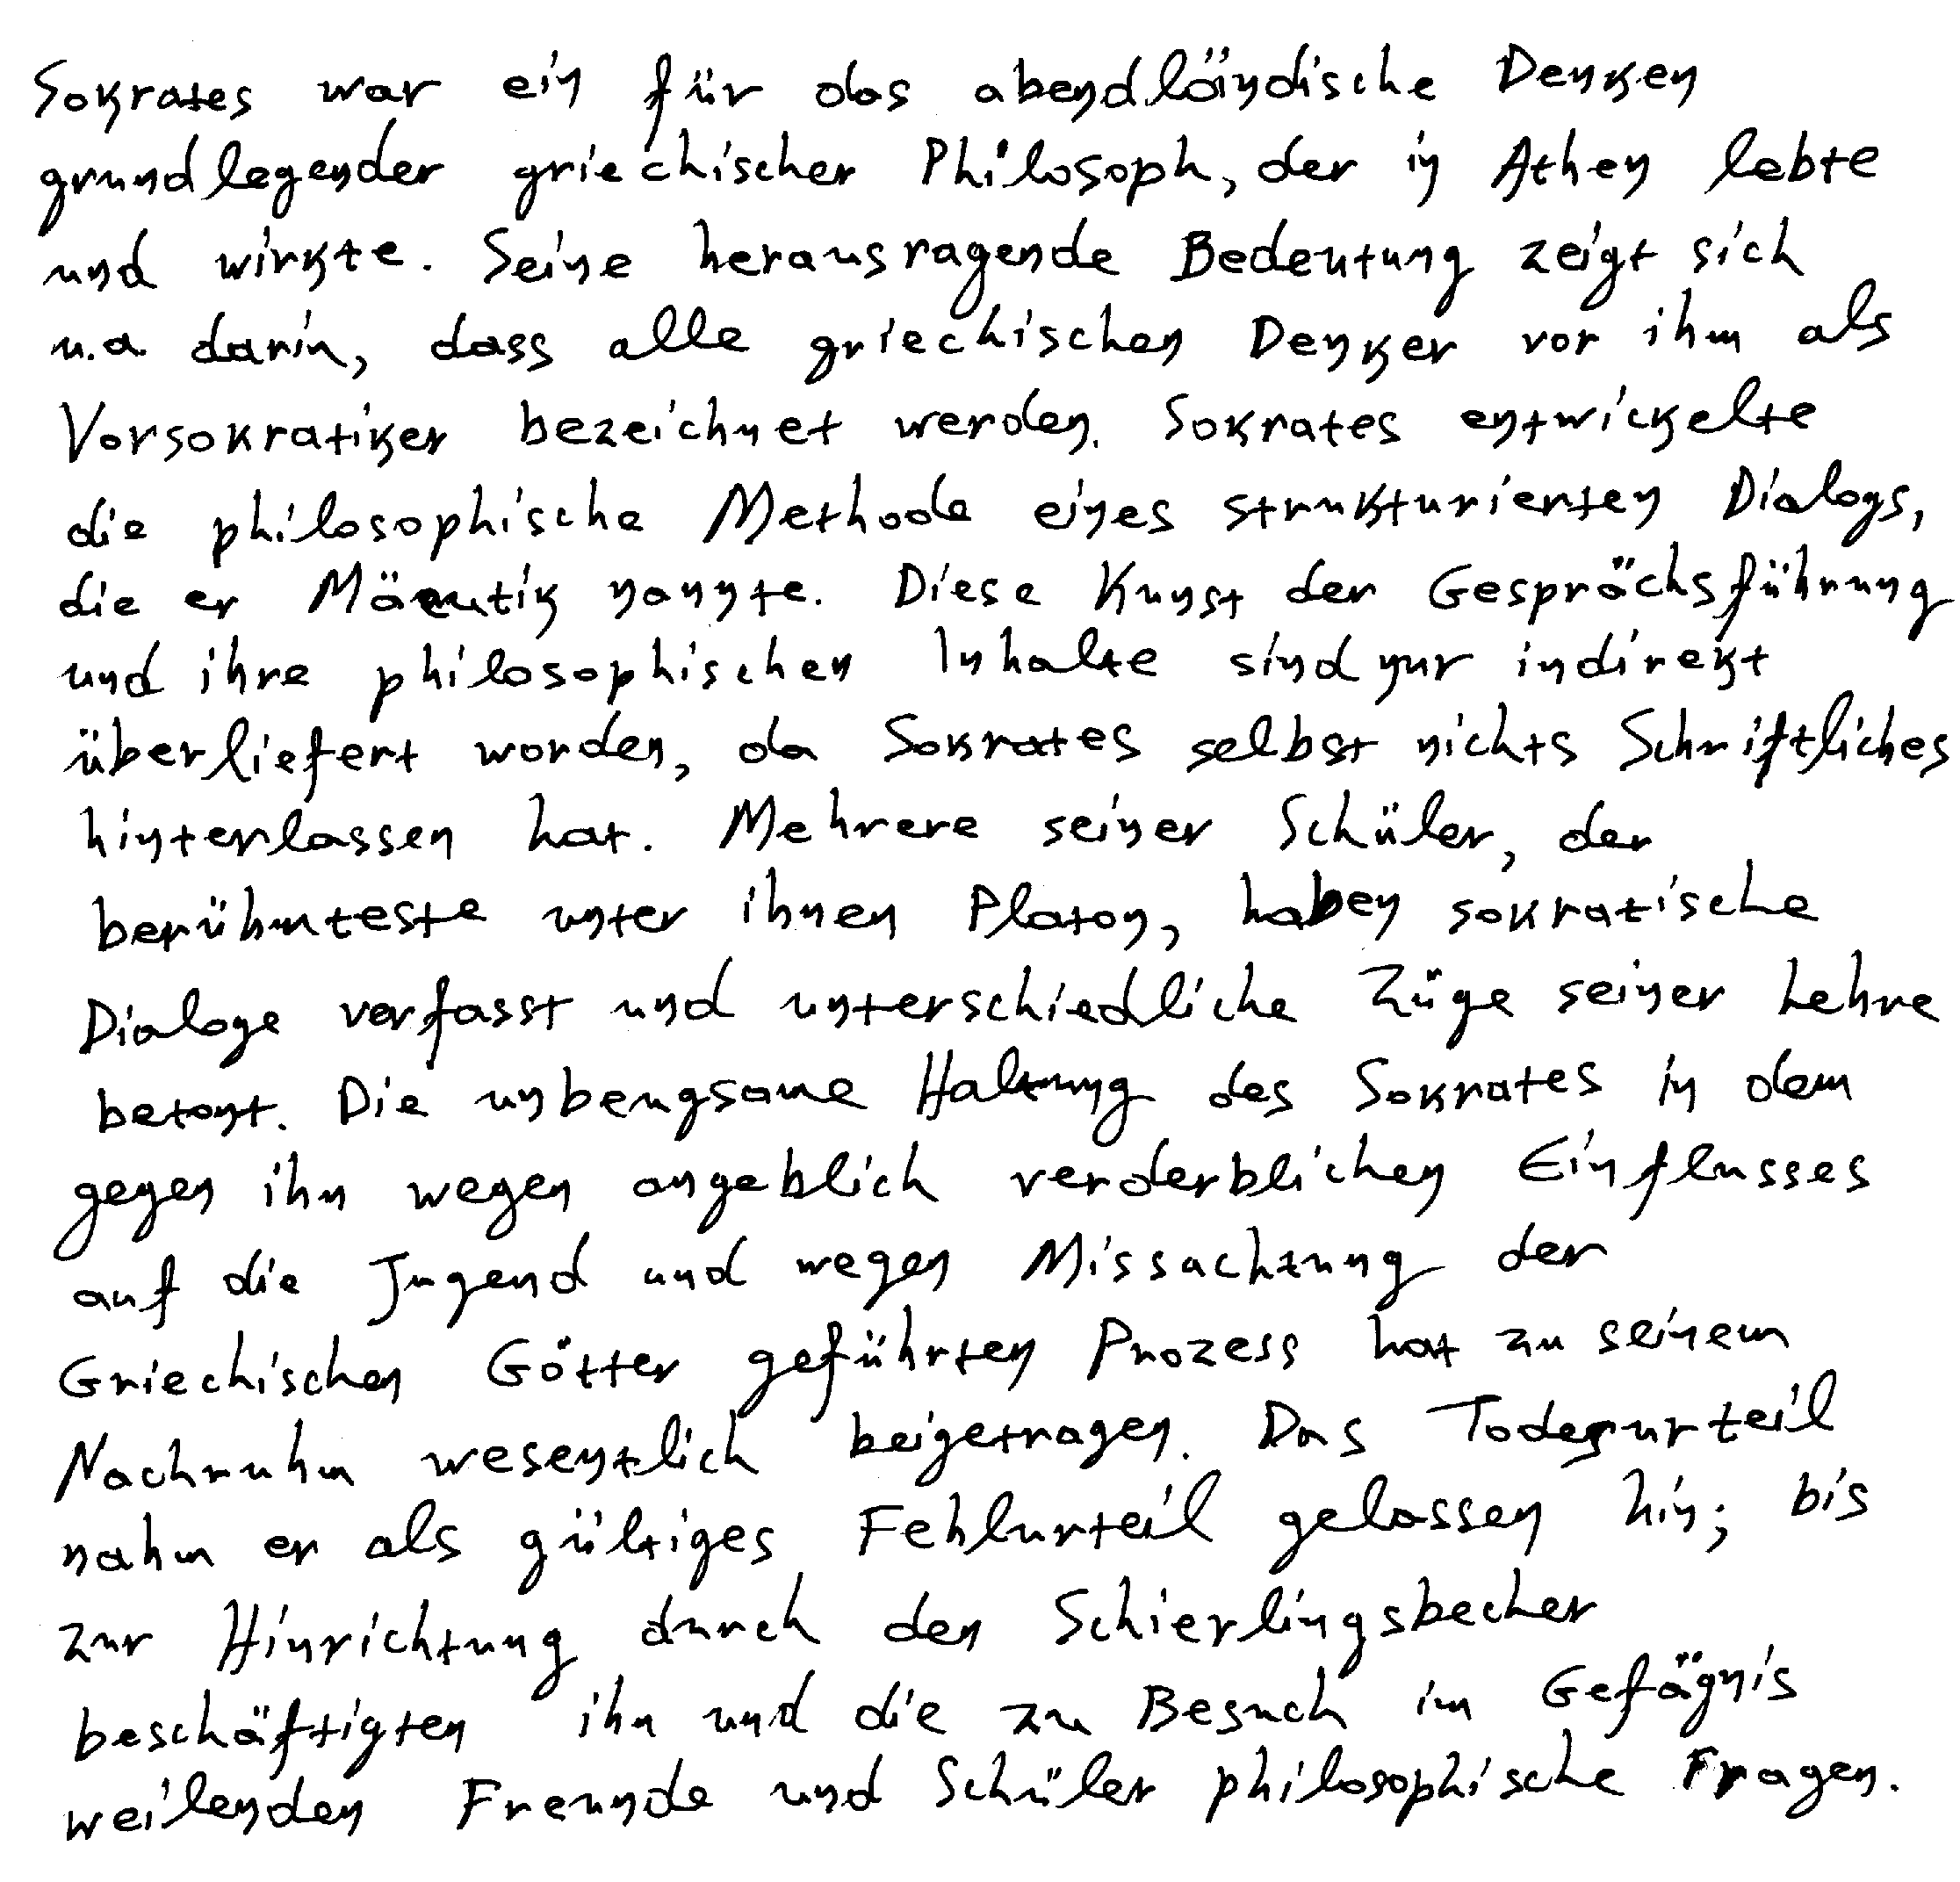 Sokrates war ein für das abendländische Denken
grundlegender griechischer Philosoph, der in Athen lebte
und wirkte. Seine herausragende Bedeutung zeigt sich
u.a darin, dass alle griechischen Denker vor ihm als
Vorsokratiker bezeichnet werden. Sokrates entwickelte
die philosophische Methode eines strukturierten Dialogs,
die er Mäeutik nannte. Diese Kunst der Gesprächsführung
und ihre philosophischen Inhalte sind nur indirekt
überliefert worden, da Sokrates selbst nichts Schriftliches
hinterlassen hat. Mehrere seiner Schüler, der
berühmteste unter ihnen Platon, haben sokratische
Dialoge verfasst und unterschiedliche Züge seiner Lehre
betont. Die unbeugsame Haltung des Sokrates in dem
gegen ihn wegen angeblich verderblichen Einflusses
auf die Jugend und wegen Missachtung der
Griechischen Götter geführten Prozess hat zu seinem
Nachruhm wesentlich beigetragen. Das Todesurteil
nahm er als gültiges Fehlurteil gelassen hin; bis
zur Hinrichtung durch den Schierlingsbecher
beschäftigten ihn und die zu Besuch im Gefägnis
weilenden Freunde und Schüler philosophische Fragen.